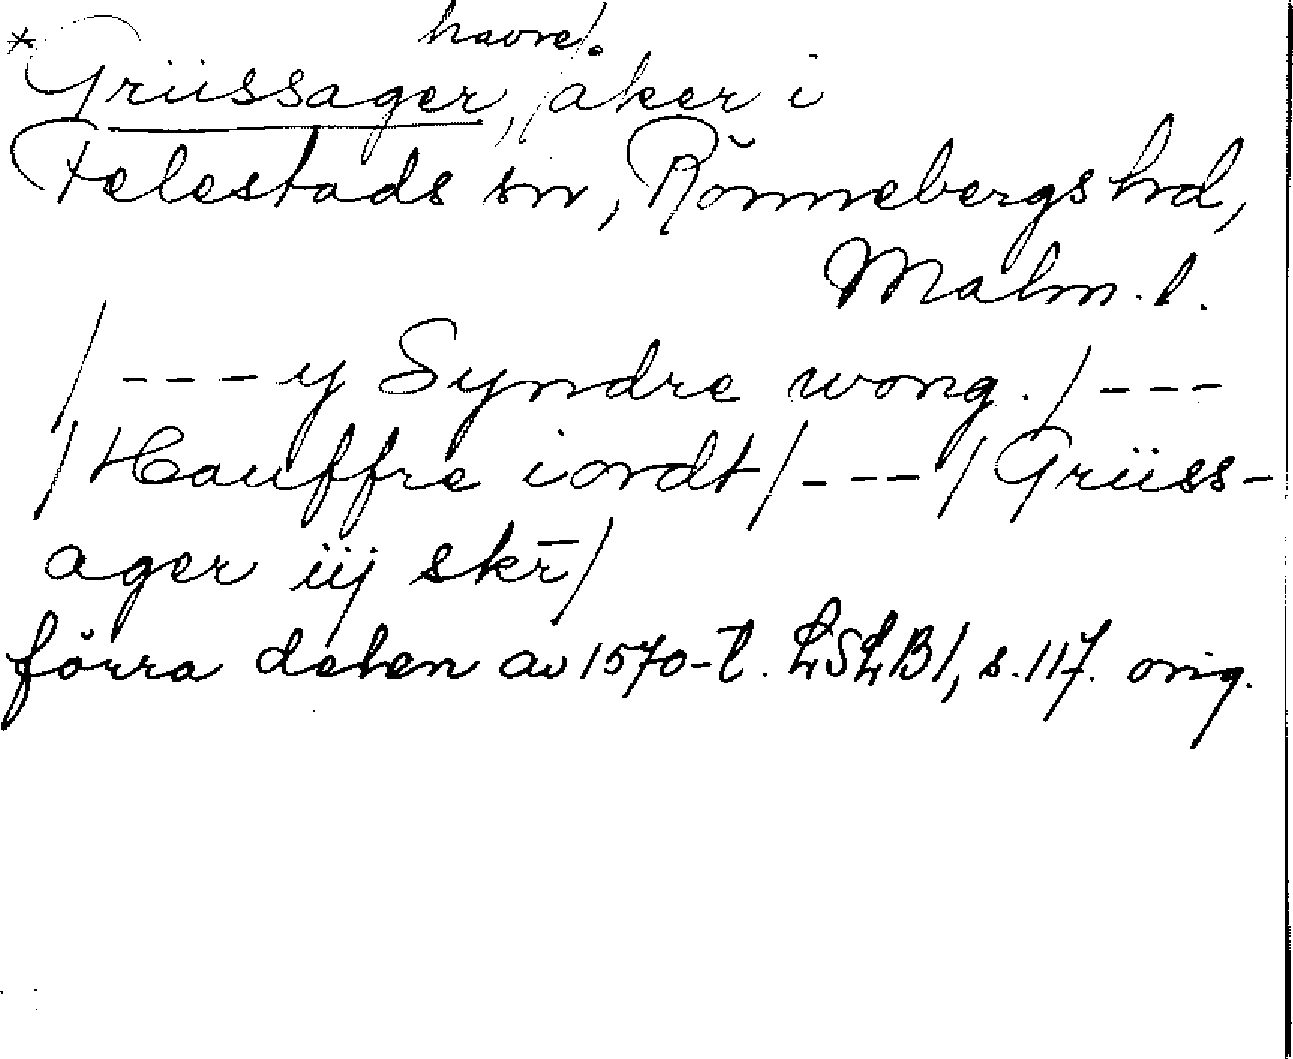 havre/.
*Grüssager, /åker i
Felestads sn, Rönnebergs hd,
Malm. l.
/---y Syndre wong./---
/Hauffre iordt/---/Grüss-
ager iij skr̄/
förra delen av 1570-t. LSLB1, s. 117. orig.